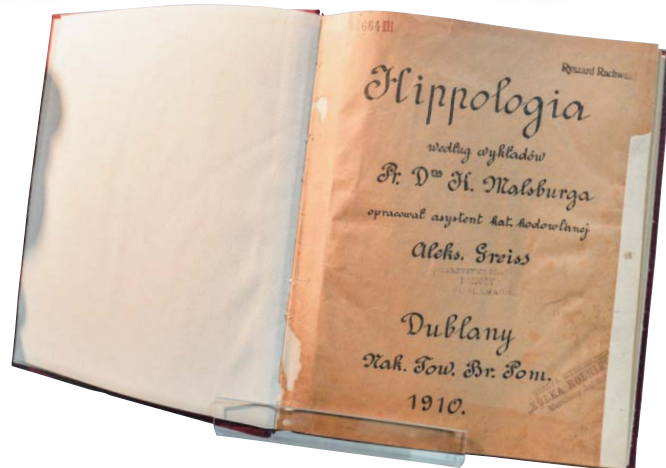 664 III
Ryszard Rachwał
Hippologia
według wykładów
Pr. Dra K. Malsburga
opracował asystent kat. hodowlanej
Aleks. Greiss
POMOCY
Dublany
Nak. Tow. Br. Pom.
1910.
KÓŁKA